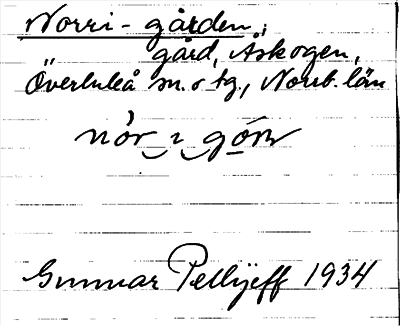 Norri-gården,
gård, Åskogen,
Överluleå sn. o tg., Norrb. län
Gunnar Pellijeff 1934